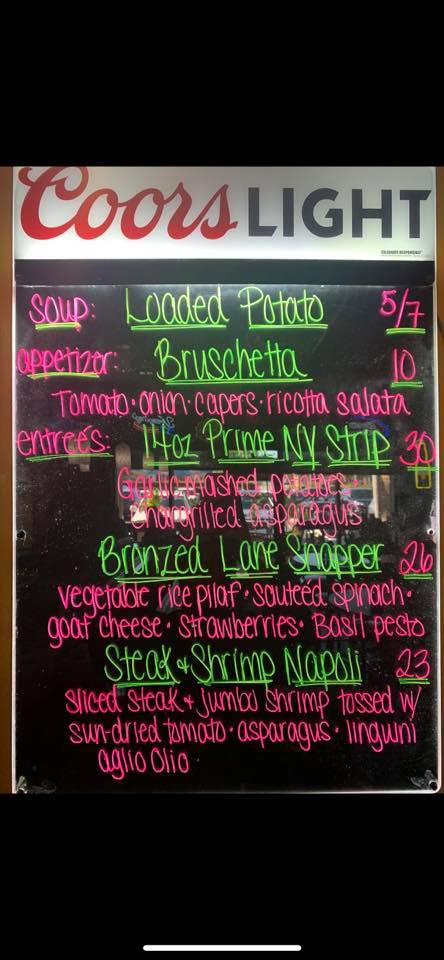 Coors LIGHT
CELEBRATE RESPONSIBLY
Soup: Loaded Potato 5/7
appetizer: Bruschetta 10
Tomato · onion · capers · ricotta salata
entreés: 14oz Prime NY Strip 30
Garlic mashed potatoes ·
chargrilled asparagus
Bronzed Lane Snapper 26
vegetable rice pilaf · sauteed spinach ·
goat cheese · strawberries · Basil pesto
Steak + Shrimp Napoli 23
sliced steak + jumbo shrimp tossed w/
sun-dried tomato · asparagus · linguini
aglio olio